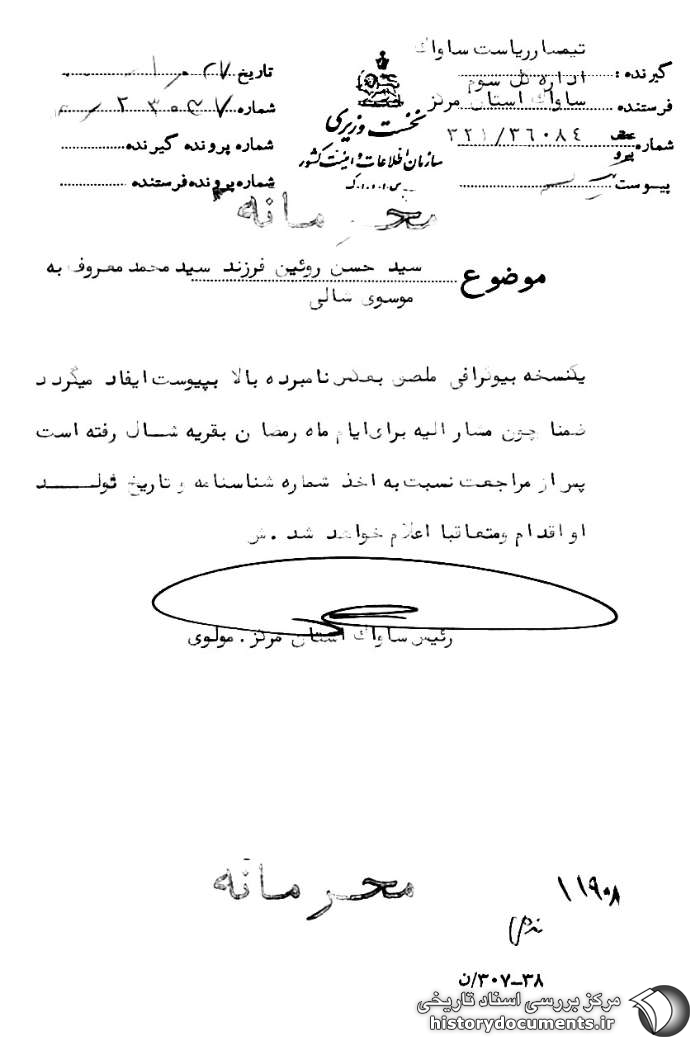 تیمسار ریاست ساواک
گیرنده : اداره کل سوم
فرستنده ساواک استان مرکز
شماره ۳۲۱/۳۶۰۸٤
پیرو
پیوست
نخست وزیری
سازمان اطلاعات و امنیت کشور
س.ا.و.ا.ک
تاریخ
شماره
شماره پرونده گیرنده
شماره پرونده فرستنده
محرمانه
موضوع سید حسن روئین فرزند سید محمد معروف به
موسوی شالی
یکنسخه بیوگرافی ملصق بعکس نامبرده بالا بپیوست ایفاد میگردد
ضمنا چون مشار الیه برای ایام ماه رمضان بقریه شال رفته است
پس از مراجعت نسبت به اخذ شماره شناسنامه و تاریخ تولد
او اقدام ومتعاقبا اعلام خواهد شد . ش
رئیس ساواک استان مرکز . مولوی
محرمانه
۱۱۹۰۸
۳۰۷-۳۸/ن
مرکز بررسی اسناد تاریخی
historydocuments.ir